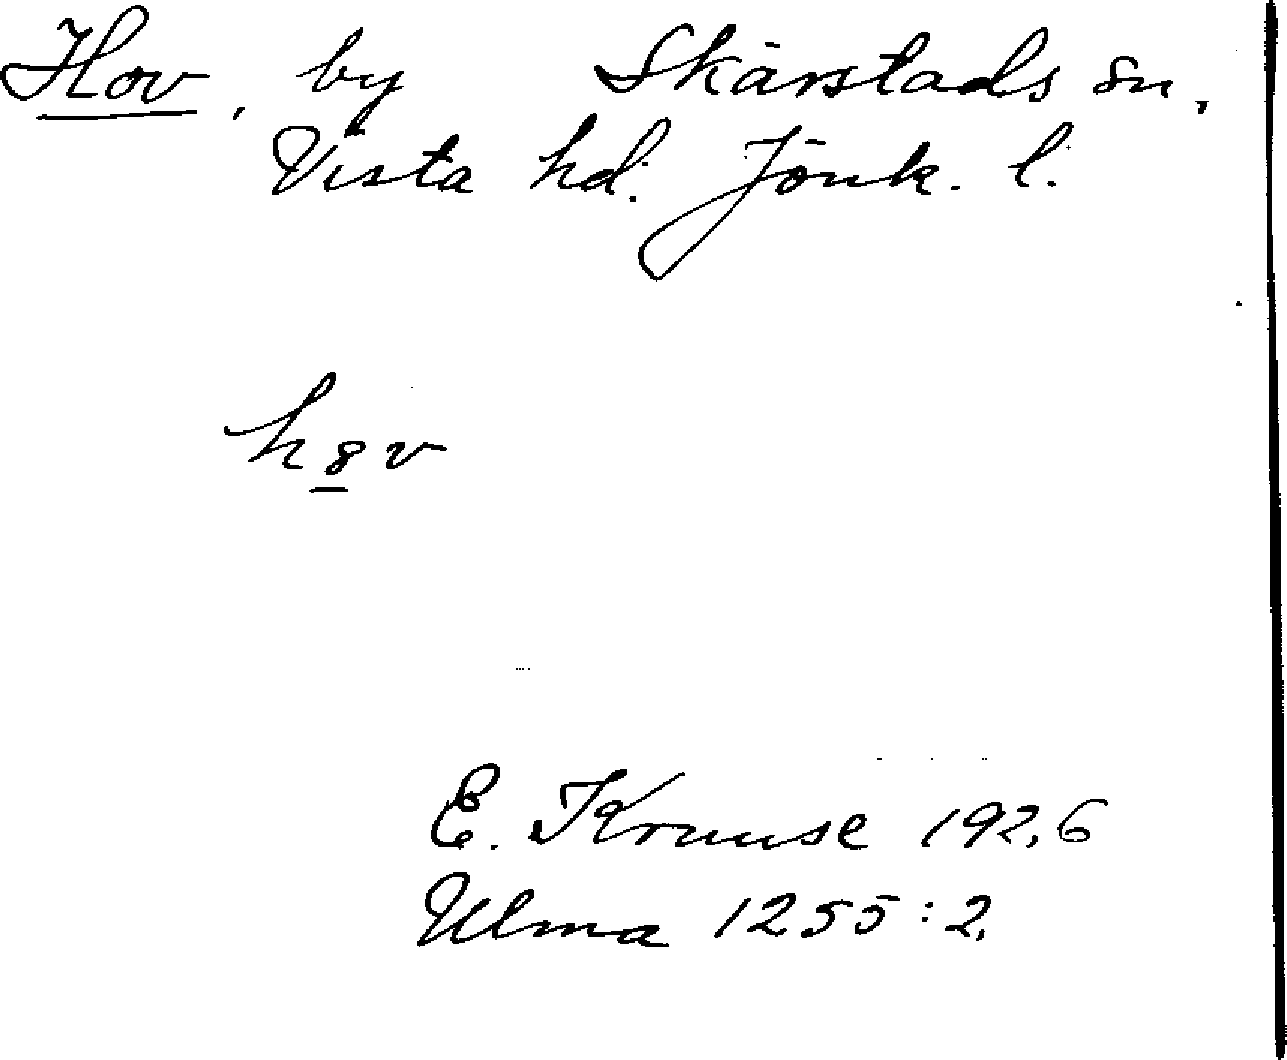 Hov, by Skärstads sn,
Vista hd. Jönk. l.
h8v
E. Kruuse 1926
Ulma 1255:2,